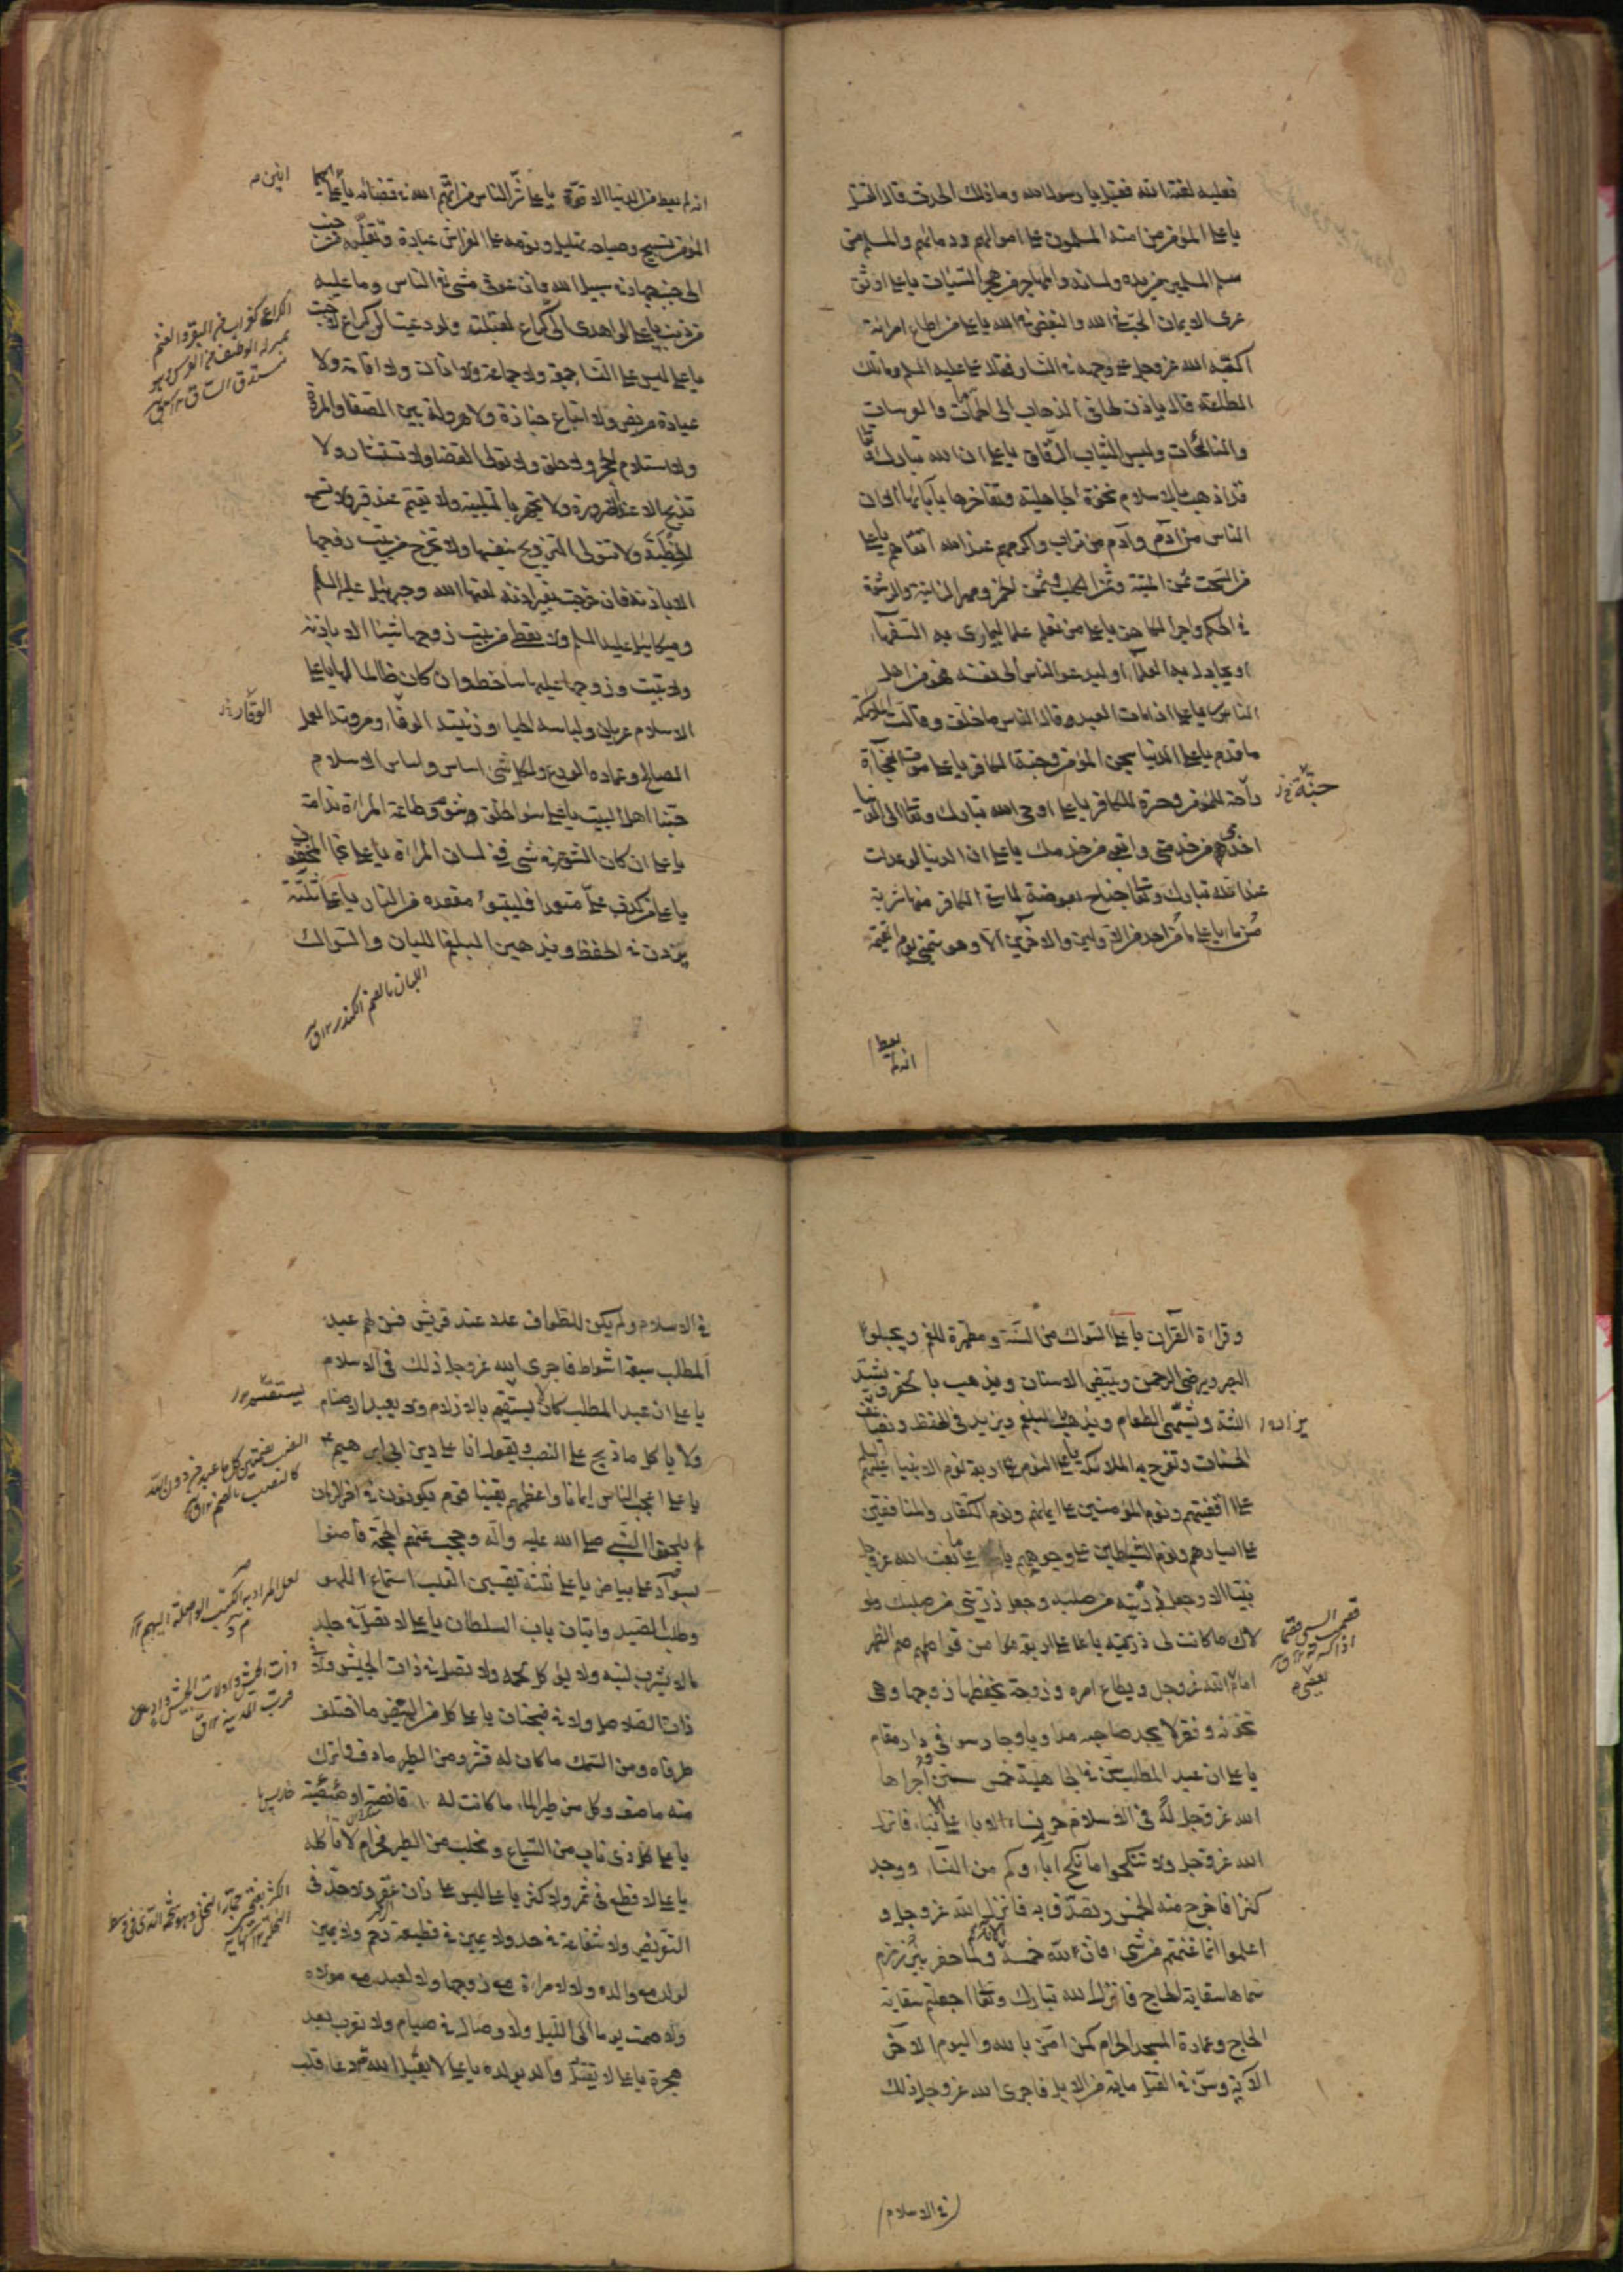 فعليه لعنة الله فقيل يا رسول الله وما ذلك الحدث قال القتل
يا علي المؤمن من امنه المسلمون على اموالهم ودمائهم والمسلم من
سلم المسلمون من يده ولسانه والمهاجر من هجر السيئات يا علي اوثق
عرى الايمان الحب في الله والبغض في الله يا علي من اطاع امراته
اكبه الله عز وجل على وجهه في النار فقال علي عليه السلم وما تلك
الطاعة قال ياذن لها في الذهاب الى الحمامات والعرسات
والنائحات ولبس الثياب الرقاق يا علي ان الله تبارك وتعالى
قد اذهب بالاسلام نخوة الجاهلية وتفاخرها بآبائها الا ان
الناس من آدم وآدم من تراب واكرمهم عند الله اتقاهم يا علي
من السحت ثمن الميتة وثمن الكلب وثمن الخمر ومهر الزانية والرشوة
في الحكم واجر الكاهن يا علي من تعلم علما ليماري به السفهاء
او يجادل به العلماء او ليدعو الناس الى نفسه فهو من اهل
النار يا علي اذا مات العبد قال الناس ما خلف وقالت الملائكة
ما قدم يا علي الدنيا سجن المؤمن وجنة الكافر يا علي موت الفجأة
جنة
راحة للمؤمن وحسرة للكافر يا علي اوحى الله تبارك وتعالى الى الدنيا
اخدمي من خدمني واتعبي من خدمك يا علي ان الدنيا لو عدلت
عند الله تبارك وتعالى جناح بعوضة لما سقى الكافر منها شربة
من ماء يا علي ما من احد من الاولين والآخرين الا وهو يتمنى يوم القيمة
انه لم يعط
انه لم يعط من الدنيا الا قوتا يا علي شر الناس من اتهم الله في قضائه يا علي
انين
المؤمن تسبيح وصياحه تهليل ونومه على الفراش عبادة وتقلبه من جنب
الى جنب جهاد في سبيل الله فان عوفي مشى في الناس وما عليه
من ذنب يا علي لو اهدي الي كراع لقبلت ولو دعيت الى كراع لاجبت
الكراع كغراب من البقر والغنم
بمنزلة الوظيف من الفرس وهو
مستدق الساق
يا علي ليس على النساء جمعة ولا جماعة ولا اذان ولا اقامة ولا
عيادة مريض ولا اتباع جنازة ولا هرولة بين الصفا والمروة
ولا استلام الحجر ولا حلق ولا تولى القضا ولا تستشار ولا
تذبح الا عند الضرورة ولا تجهر بالتلبية ولا تقيم عند قبر ولا تسمع
الخطبة ولا تتولى التزويج بنفسها ولا تخرج من بيت زوجها
الا باذنه فان خرجت بغير اذنه لعنها الله وجبرئيل عليه السلم
وميكائيل عليه السلم ولا تعطي من بيت زوجها شيئا الا باذنه
ولا تبيت وزوجها عليها ساخط وان كان ظالما لها يا علي
الاسلام عريان ولباسه الحياء وزينته الوفاء ومروته العمل
الوقار
الصالح وعماده الورع ولكل شئ اساس واساس الاسلام
حبنا اهل البيت يا علي سوء الخلق شوم وطاعة المراة ندامة
يا علي ان كان الشوم في شئ ففي لسان المراة يا علي نجا المخفون
يا علي من كذب علي متعمدا فليتبوء مقعده من النار يا علي ثلثة
يزدن في الحفظ ويذهبن البلغم اللبان والسواك
اللبان بالضم الكندر
وقراءة القرآن يا علي السواك من السنة ومطهرة للفم ويجلو
البصر ويرضي الرحمن ويبيض الاسنان ويذهب بالحفر ويشد
اللثة ويشهي الطعام ويذهب بالبلغم ويزيد في الحفظ ويضاعف
الحسنات وتفرح به الملائكة يا علي النوم على اربعة نوم الانبياء عليهم السلم
على اقفيتهم ونوم المؤمنين على ايمانهم ونوم الكفار والمنافقين
على ايسارهم ونوم الشياطين على وجوههم يا علي ما بعث الله عز وجل
نبيا الا وجعل ذريته من صلبه وجعل ذريتي من صلبك ولو
لاك ما كانت لي ذرية يا علي اربعة من قواصم الظهر
امام الله عز وجل ويطاع امره وزوجة يحفظها زوجها وهي
تخونه وفقر لا يجد صاحبه مداويا وجار سوء في دار مقام
يا علي ان عبد المطلب سن في الجاهلية خمس سنن اجراها
الله عز وجل له في الاسلام حرم نساء الاباء على الابناء فانزل
الله عز وجل ولا تنكحوا ما نكح آباؤكم من النساء ووجد
كنزا فاخرج منه الخمس وتصدق به فانزل الله عز وجل و
اعلموا انما غنمتم من شئ فان لله خمسه الآية ولما حفر بئر زمزم
سماها سقاية الحاج فانزل الله تبارك وتعالى اجعلتم سقاية
الحاج وعمارة المسجد الحرام كمن امن بالله واليوم الاخر
الآية وسن في القتل مائة من الابل فاجرى الله عز وجل ذلك
في الاسلام
في الاسلام ولم يكن للطواف عدد عند قريش فسن لهم عبد
المطلب سبعة اشواط فاجرى الله عز وجل ذلك في الاسلام
يا علي ان عبد المطلب كان لا يستقسم بالازلام ولا يعبد الاصنام
يستقسم
ولا ياكل ما ذبح على النصب ويقول انا على دين ابي ابرهيم
يا علي اعجب الناس ايمانا واعظمهم يقينا قوم يكونون في آخر الزمان
لم يلحقوا النبي صلى الله عليه وآله وحجب عنهم الحجة فآمنوا
بسواد على بياض يا علي ثلثة يقسين القلب استماع اللهو
لعل المراد به الكتب الواصلة اليهم
وطلب الصيد واتيان باب السلطان يا علي لا تصل في جلد
ما لا يشرب لبنه ولا يؤكل لحمه ولا تصل في ذات الجيش ولا في
ذات الصلاصل ولا في ضجنان يا علي كل من البيض ما اختلف
طرفاه ومن السمك ما كان له قشر ومن الطير ما دف واترك
منه ما صف وكل من طير الماء ما كانت له قانصة او صيصية
يا علي كل ذي ناب من السباع ومخلب من الطير فحرام لا تاكله
يا علي لا قطع في ثمر ولا كثر يا علي ليس على زان عقر ولا حد في
التعريض ولا شفاعة في حد ولا يمين في قطيعة رحم ولا يمين
لولد مع والده ولا لامراة مع زوجها ولا لعبد مع مولاه
ولا صمت يوما الى الليل ولا وصال في صيام ولا تعرب بعد
هجرة يا علي لا يقتل والد بولده يا علي لا يقبل الله دعاء قلب